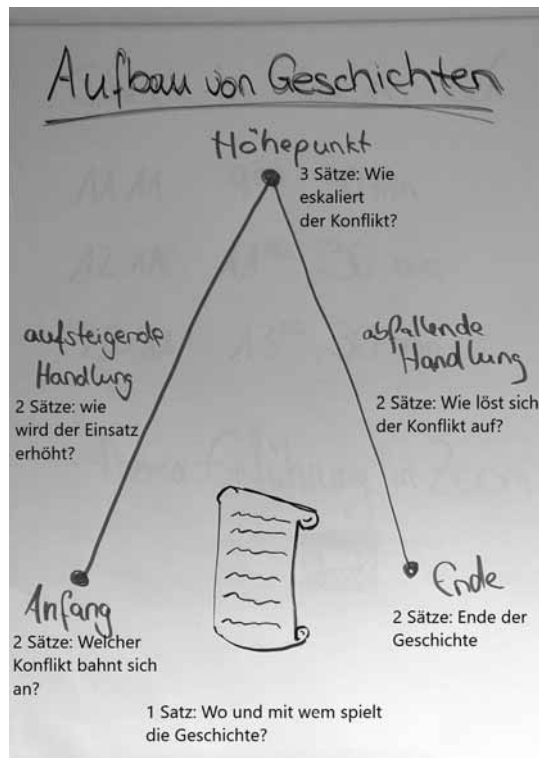 Aufbau von Geschichten
Höhepunkt
3 Sätze: Wie
eskaliert
der Konflikt?
aufsteigende
Handlung
2 Sätze: wie
wird der Einsatz
erhöht?
abfallende
Handlung
2 Sätze: Wie löst sich
der Konflikt auf?
Anfang
2 Sätze: Welcher
Konflikt bahnt sich
an?
Ende
2 Sätze: Ende der
Geschichte
1 Satz: Wo und mit wem spielt
die Geschichte?